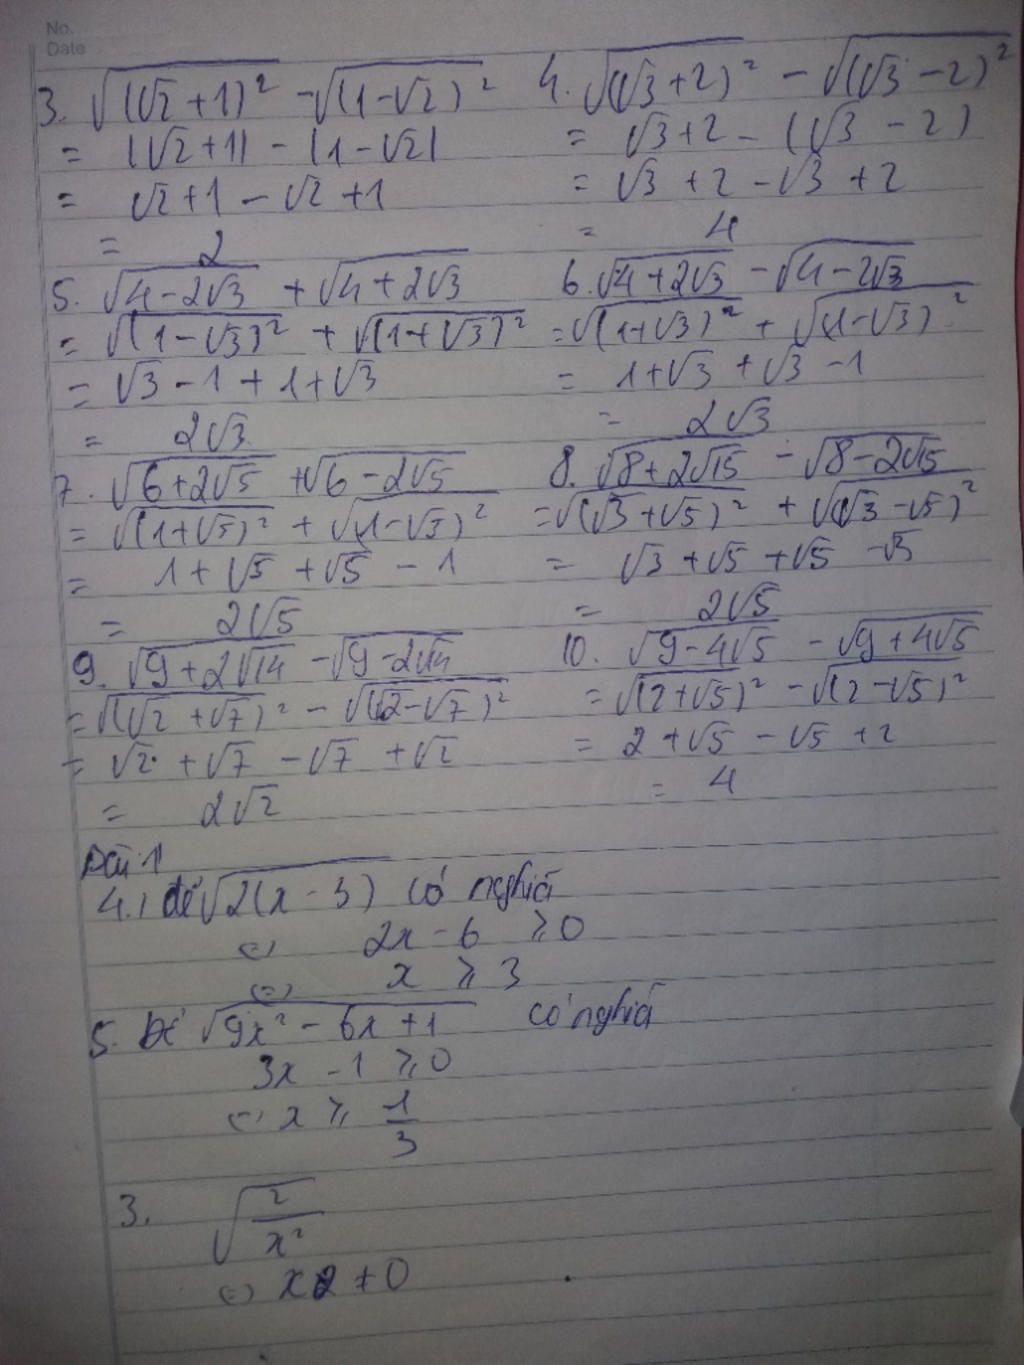 No.
Date
3. √(√2+1)² - √(1-√2)²
= |√2+1| - |1-√2|
= √2+1 - √2+1
= 2
4. √(√3+2)² - √(√3-2)²
= √3+2 - (√3-2)
= √3+2-√3+2
= 4
5. √4-2√3 + √4+2√3
= √(1-√3)² + √(1+√3)²
= √3-1+1+√3
= 2√3
6. √4+2√3 - √4-2√3
= √(1+√3)² + √(1-√3)²
= 1+√3+√3-1
= 2√3
7. √6+2√5 + √6-2√5
= √(1+√5)² + √(1-√5)²
= 1+√5+√5-1
= 2√5
8. √8+2√15 - √8-2√15
= √(√3+√5)² + √(√3-√5)²
= √3+√5+√5-√3
= 2√5
9. √9+2√14 - √9-2√14
= √(√2+√7)² - √(√2-√7)²
= √2+√7-√7+√2
= 2√2
10. √9-4√5 - √9+4√5
= √(2+√5)² - √(2-√5)²
= 2+√5-√5+2
= 4
Bài 1
4.1 để √2(x-3) có nghĩa
(=) 2x-6 ⩾0
(=) x ⩾ 3
5. Để √9x²-6x+1 có nghĩa
3x-1⩾0
(=) x ⩾ 1/3
3. √2/x²
(=) x2 ≠0